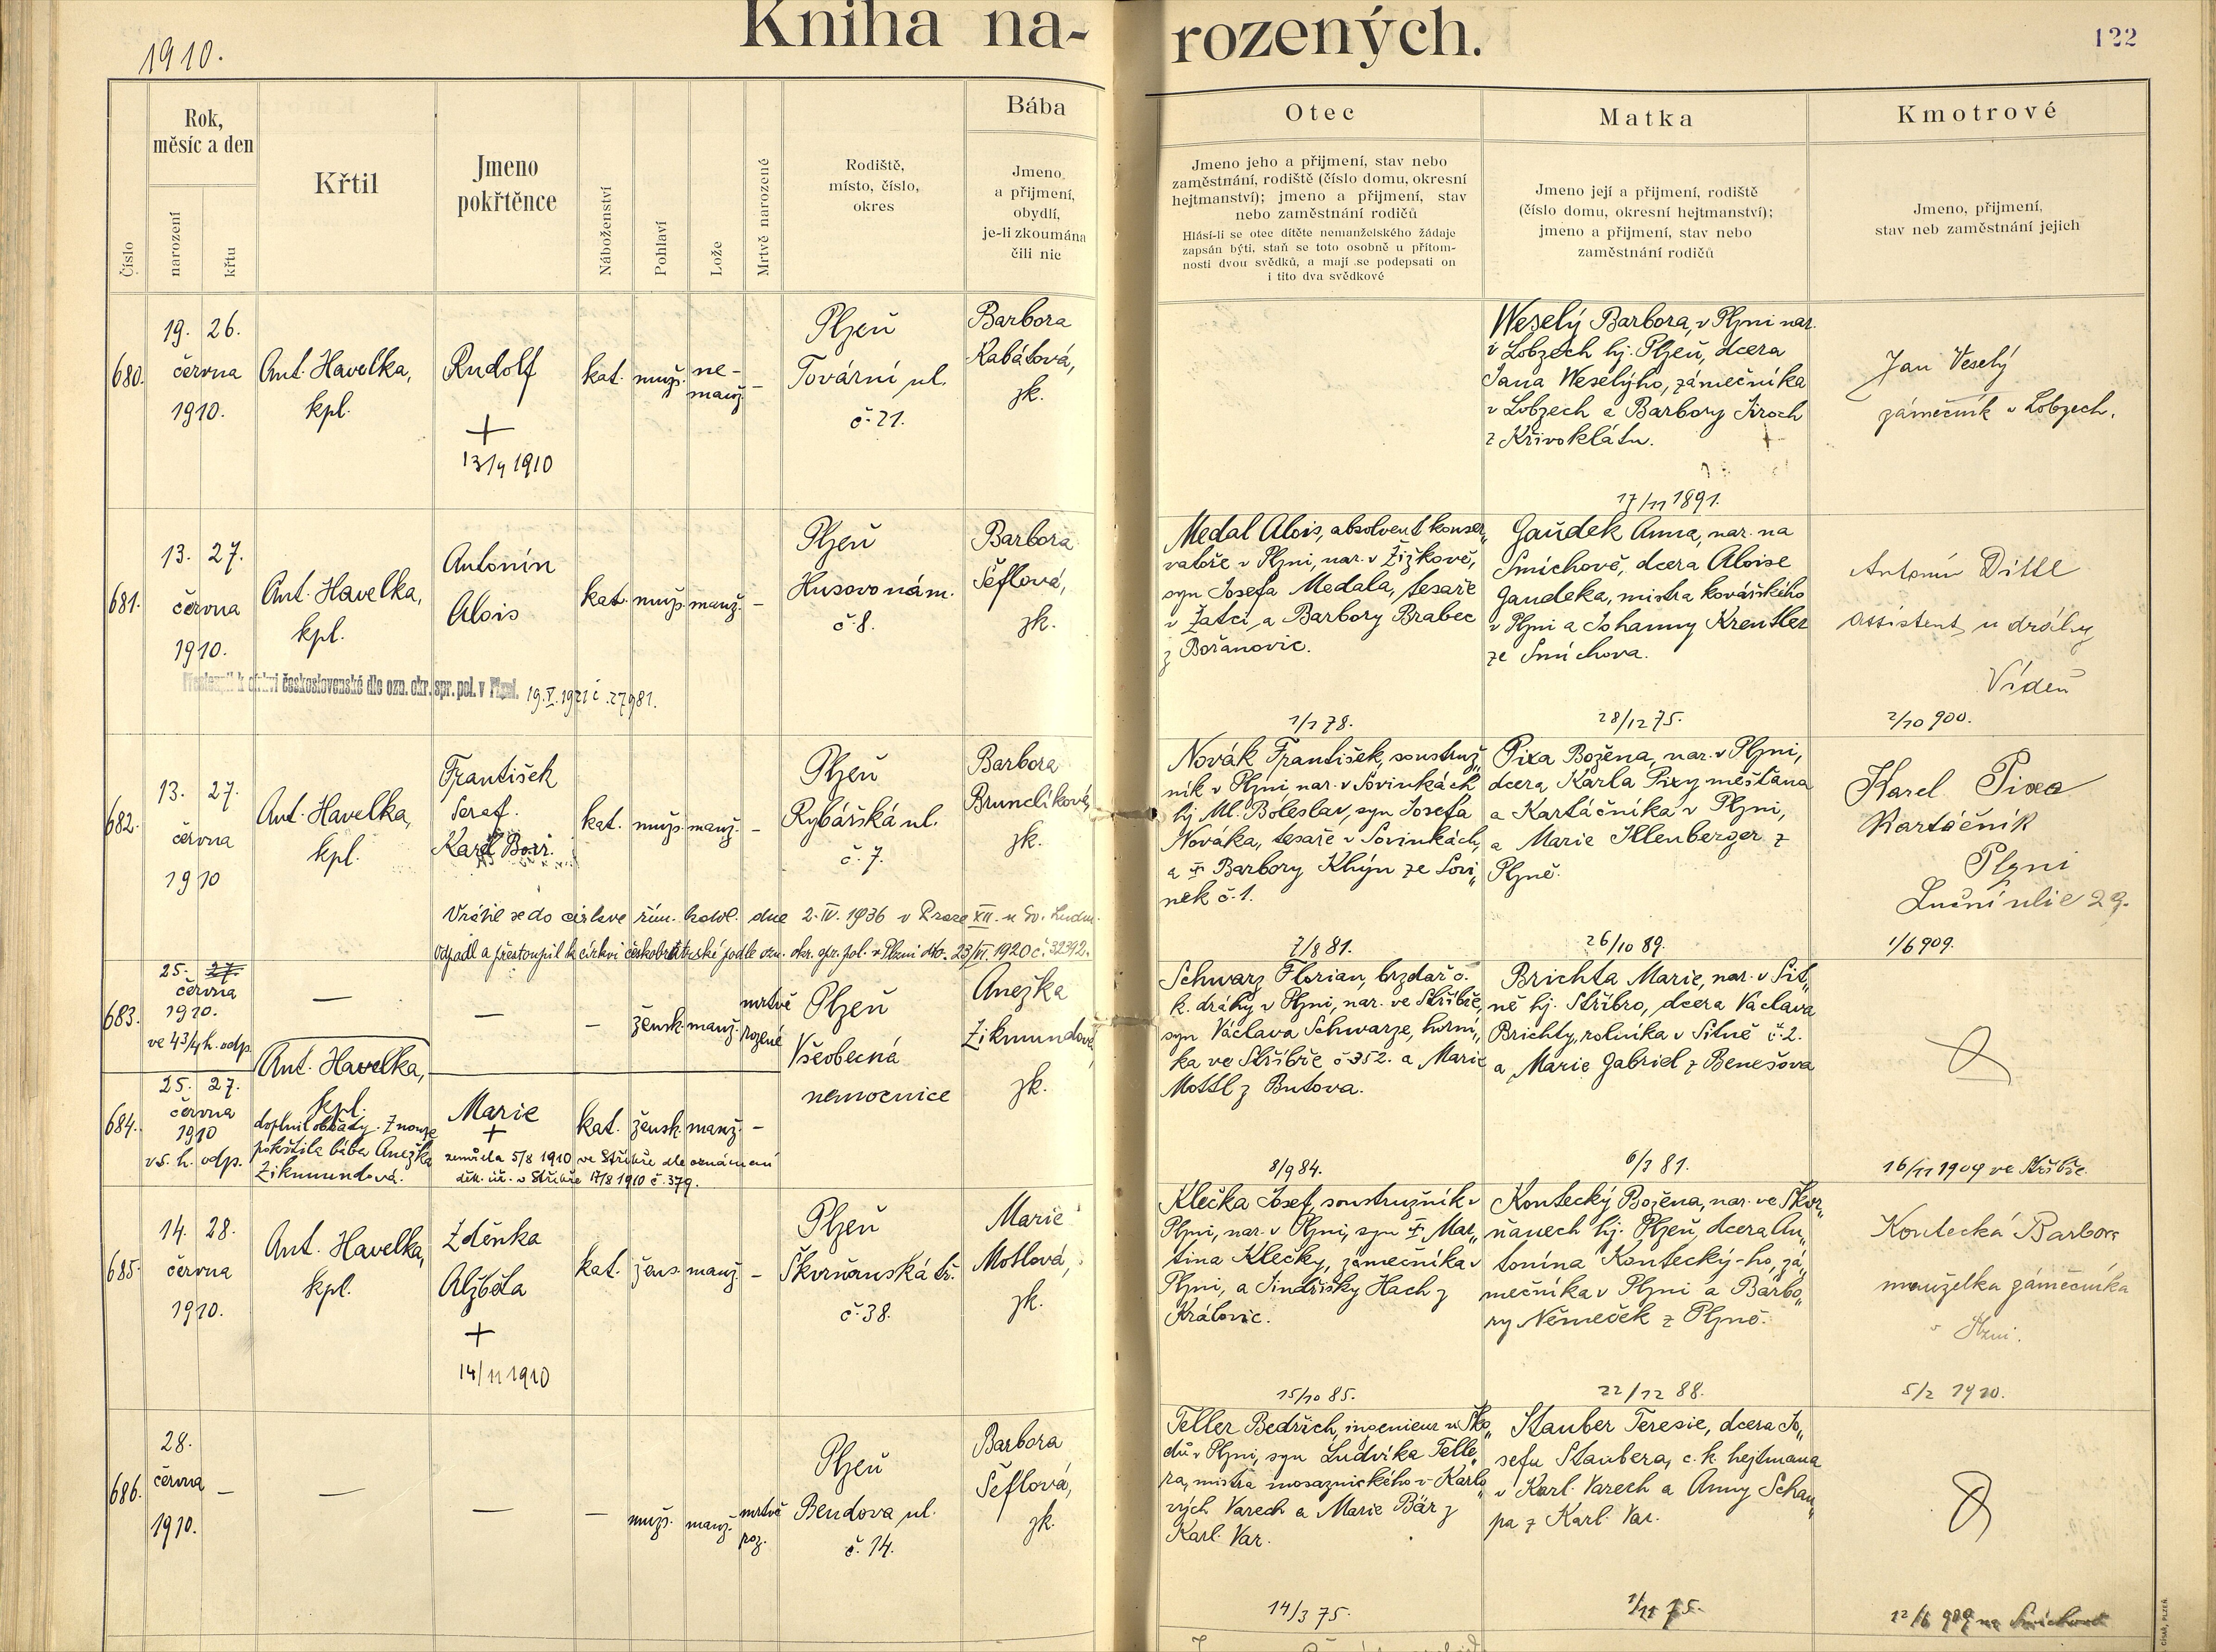 1910.
Kniha na-
rozených.
122
Číslo
Rok,
měsíc a den
narození
křtu
Křtil
Jmeno
pokřtěnce
Náboženství
Pohlaví
Lože
Mrtvě narozené
Rodiště,
místo, číslo,
okres
Bába
Jmeno
a přijmení,
obydlí,
je-li zkoumána
čili nic
Otec
Jmeno jeho a přijmení, stav nebo
zaměstnání, rodiště (číslo domu, okresní
hejtmanství); jmeno a přijmení, stav
nebo zaměstnání rodičů
Hlásí-li se otec dítěte nemanželského žádaje
zapsán býti, staň se toto osobně u přítom-
nosti dvou svědků, a mají se podepsati on
i tito dva svědkové
Matka
Jmeno její a přijmení, rodiště
(číslo domu, okresní hejtmanství);
jmeno a přijmení, stav nebo
zaměstnání rodičů
Kmotrové
Jmeno, přijmení,
stav neb zaměstnání jejich
680.
19. 26.
června
1910.
Ant. Havelka,
kpl.
Rudolf
+
13/9 1910
kat.
muž.
ne-
manž.
–
Plzeň
Tovární ul.
č. 21.
Barbora
Kabátová,
zk.
Weselý Barbora, v Plzni nar.
v Lobzech hj. Plzeň, dcera
Jana Weselýho, zámečníka
v Lobzech a Barbory Jiroch
z Křivoklátu.
17/11 1891.
Jan Veselý
zámečník v Lobzech.
681.
13. 27.
června
1910.
Ant. Havelka,
kpl.
Antonín
Alois
kat.
muž.
manž.
–
Plzeň
Husovo nám.
č. 8.
Barbora
Šeflová,
zk.
Medal Alois, absolvent konser„
vatoře v Plzni, nar. v Žižkově,
syn Josefa Medala, tesaře
v Žatci a Barbory Brabec
z Bořanovic.
1/1 78.
Gaudek Anna, nar. na
Smíchově, dcera Aloise
Gaudeka, mistra kovářského
v Plzni a Johanny Kreutler
ze Smíchova.
28/12 75.
Antonín Dittl
assistent u dráhy
Vídeň
2/10 900.
Přestoupil k církvi československé dle ozn. okr. spr. pol. v Plzni. 19.V.1921 č. 27981.
682.
13. 27.
června
1910
Ant. Havelka,
kpl.
František
Seraf.
Karel
kat.
muž.
manž.
–
Plzeň
Rybářská ul.
č. 7.
Barbora
Brunclíková,
zk.
Novák František, soustruž„
ník v Plzni nar. v Sovinkách
hj. Ml. Boleslav, syn Josefa
Nováka, tesaře v Sovinkách,
a † Barbory Khýn ze Sovi„
nek č. 1.
7/8 81.
Pixa Božena, nar. v Plzni,
dcera Karla Pixy měšťana
a Kartáčníka v Plzni,
a Marie Illenberger z
Plzně.
26/10 89.
Karel Pixa
Kartáčník
Plzni
Luční ulice 29.
1/6 909.
Vrátil se do církve řím. katol. dne 2. IV. 1936 v Praze XII. u Sv. Ludm.
Odpadl a přestoupil k církvi českobratrské podle ozn. okr. spr. pol. v Plzni dto. 23/VI. 1920 č. 32392.
683.
25. 27.
června
1910.
ve 4 3/4 h. odp.
—
—
–
žensk.
manž.
mrtvě
rozené
Plzeň
Všeobecná
nemocnice
Anežka
Zikmundová,
zk.
Schwarz Florian, brzdař c.
k. dráhy v Plzni, nar. ve Stříbře,
syn Václava Schwarze, horní„
ka ve Stříbře č. 352. a Marie
Mottl z Butova.
8/9 84.
Brichta Marie, nar. v Sit„
ně hj. Stříbro, dcera Václava
Brichty, rolníka v Sitně č. 2.
a Marie Gabriel z Benešova
6/1 81.
16/11 1909 ve Stříbře.
684.
25. 27.
června
1910
v 5. h. odp.
Ant. Havelka,
kpl.
doplnil obřady. Z nouze
pokřtila bába Anežka
Zikmundová.
Marie
+
zemřela 5/8 1910 ve Stříbře dle oznámení
děk. úř. v Stříbře 17/8 1910 č. 379.
kat.
žensk.
manž.
–
685.
14. 28.
června
1910.
Ant. Havelka,
kpl.
Zdeňka
Alžběta
+
14/11 1910
kat.
žens.
manž.
–
Plzeň
Škvrňanská tř.
č. 38.
Marie
Motlová,
zk.
Klečka Josef, soustružník v
Plzni, nar. v Plzni, syn † Mar„
tina Klečky, zámečníka v
Plzni, a Jindřišky Hach z
Královic.
15/10 85.
Koutecký Božena, nar. ve Škvr„
ňanech hj. Plzeň, dcera An„
tonína Koutecký-ho, zá„
mečníka v Plzni a Barbo„
ry Němeček z Plzně.
22/12 88.
Koutecká Barbora
manželka zámečníka
v Plzni.
5/2 1910.
686.
28.
června
1910.
–
—
—
–
muž.
manž.
mrtvě
roz.
Plzeň
Bendova ul.
č. 14.
Barbora
Šeflová,
zk.
Teller Bedřich, ingenieur u Ško„
dů v Plzni, syn Ludvíka Telle„
ra, mistra mosaznického v Karlo„
vých Varech a Marie Bär z
Karl. Var.
14/3 75.
Stauber Teresie, dcera Jo„
sefa Staubera, c. k. hejtmana
v Karl. Varech a Anny Schau„
pa z Karl. Var.
1/11 75.
12/6 909 na Smíchově